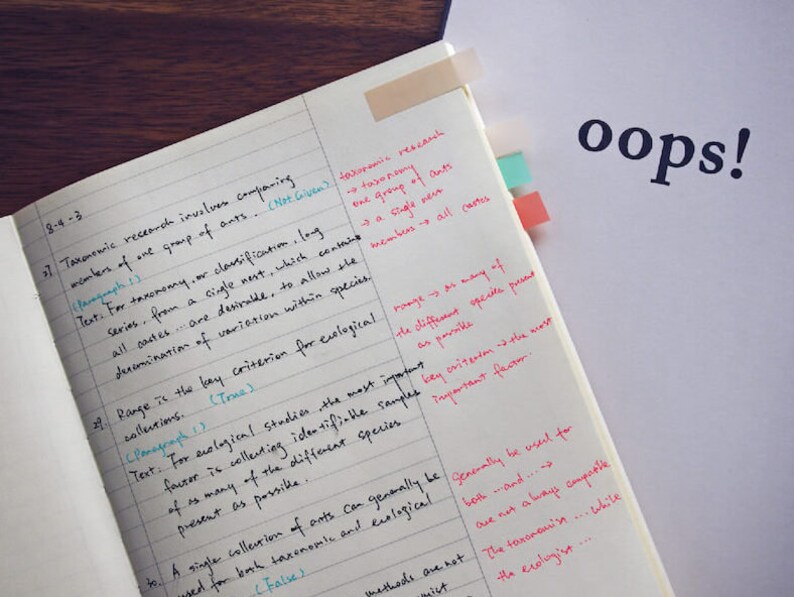 oops!
8-4-3
37. Taxonomic research involves comparing
members of one group of ants. (Not Given)
(Paragraph 1)
Text: For taxonomy, or classification, long
series, from a single nest, which contains
all castes ... are desirable, to allow the
determination of variation within species.
39. Range is the key criterion for ecological
collections. (True)
(Paragraph 1)
Text: For ecological studies, the most important
factor is collecting identifiable samples
of as many of the different species
present as possible.
40. A single collection of ants can generally be
used for both taxonomic and ecological
(False)
methods are not
taxonomic research
→ taxonomy
one group of ants
→ a single nest
members → all castes
range → as many of
the different species present
as possible
key criterion → the most
important factor.
Generally be used for
both ... and ... →
are not always compatible
The taxonomist ... while
the ecologist ...